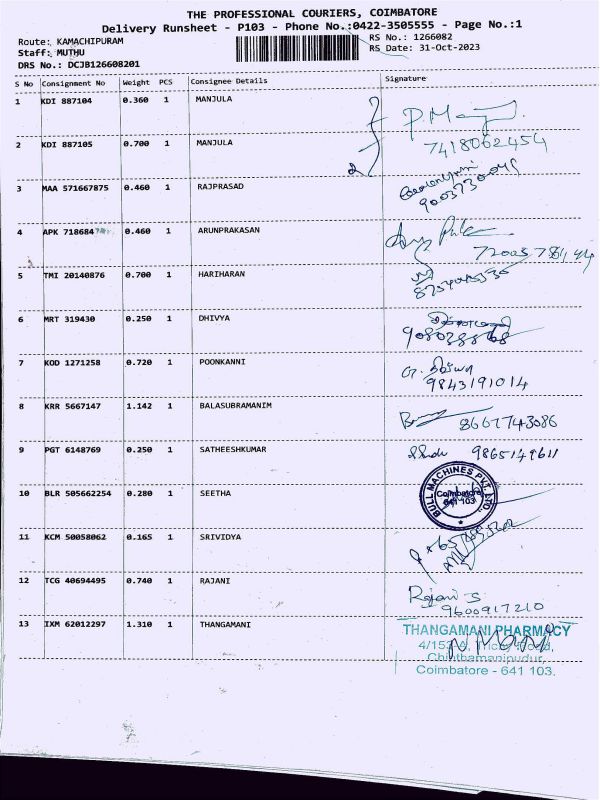 THE PROFESSIONAL COURIERS, COIMBATORE
Delivery Runsheet - P103 - Phone No.:0422-3505555 - Page No.:1
Route: KAMACHIPURAM
RS No.: 1266082
Staff: MUTHU
RS Date: 31-Oct-2023
DRS No.: DCJB126608201
S No Consignment No Weight PCS Consignee Details Signature
1 KDI 887104 0.360 1 MANJULA
2 KDI 887105 0.700 1 MANJULA 7418062454
3 MAA 571667875 0.460 1 RAJPRASAD
4 APK 718684 0.460 1 ARUNPRAKASAN
5 TMI 20140876 0.700 1 HARIHARAN
6 MRT 319430 0.250 1 DHIVYA
7 KOD 1271258 0.720 1 POONKANNI
9843191014
8 KRR 5667147 1.142 1 BALASUBRAMANIM 8667743086
9 PGT 6148769 0.250 1 SATHEESHKUMAR
BULL MACHINES PVT. LTD.
Coimbatore
641 103
10 BLR 505662254 0.280 1 SEETHA
11 KCM 50058062 0.165 1 SRIVIDYA
12 TCG 40694495 0.740 1 RAJANI Rajani S
9600917210
13 IXM 62012297 1.310 1 THANGAMANI THANGAMANI PHARMACY
Coimbatore - 641 103.